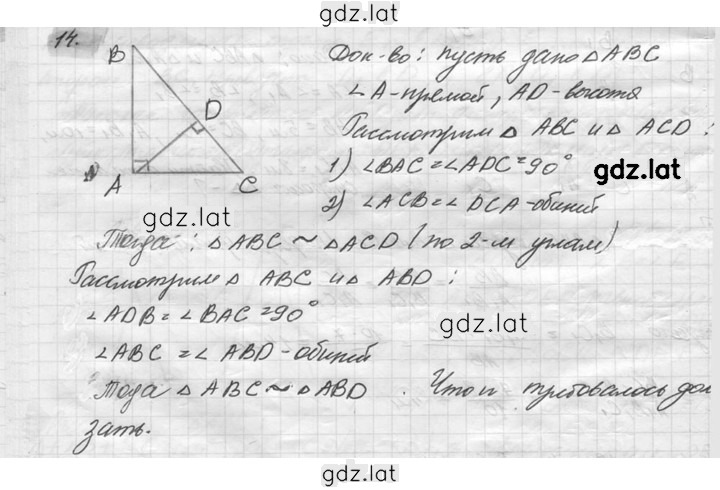 gdz.lat
14.
B
D
A
C
Док-во: пусть дано △ABC
∠A-прямой, AD-высота
Рассмотрим △ ABC и △ ACD :
1) ∠BAC=∠ADC=90°
gdz.lat
2) ∠ACB=∠DCA-общий
gdz.lat
Тогда: △ABC ~ △ACD (по 2-м углам)
Рассмотрим △ ABC и △ ABD :
∠ADB=∠BAC=90°
gdz.lat
∠ABC =∠ ABD-общий
Тогда △ ABC ~ △ABD . Что и требовалось дока
зать.
gdz.lat